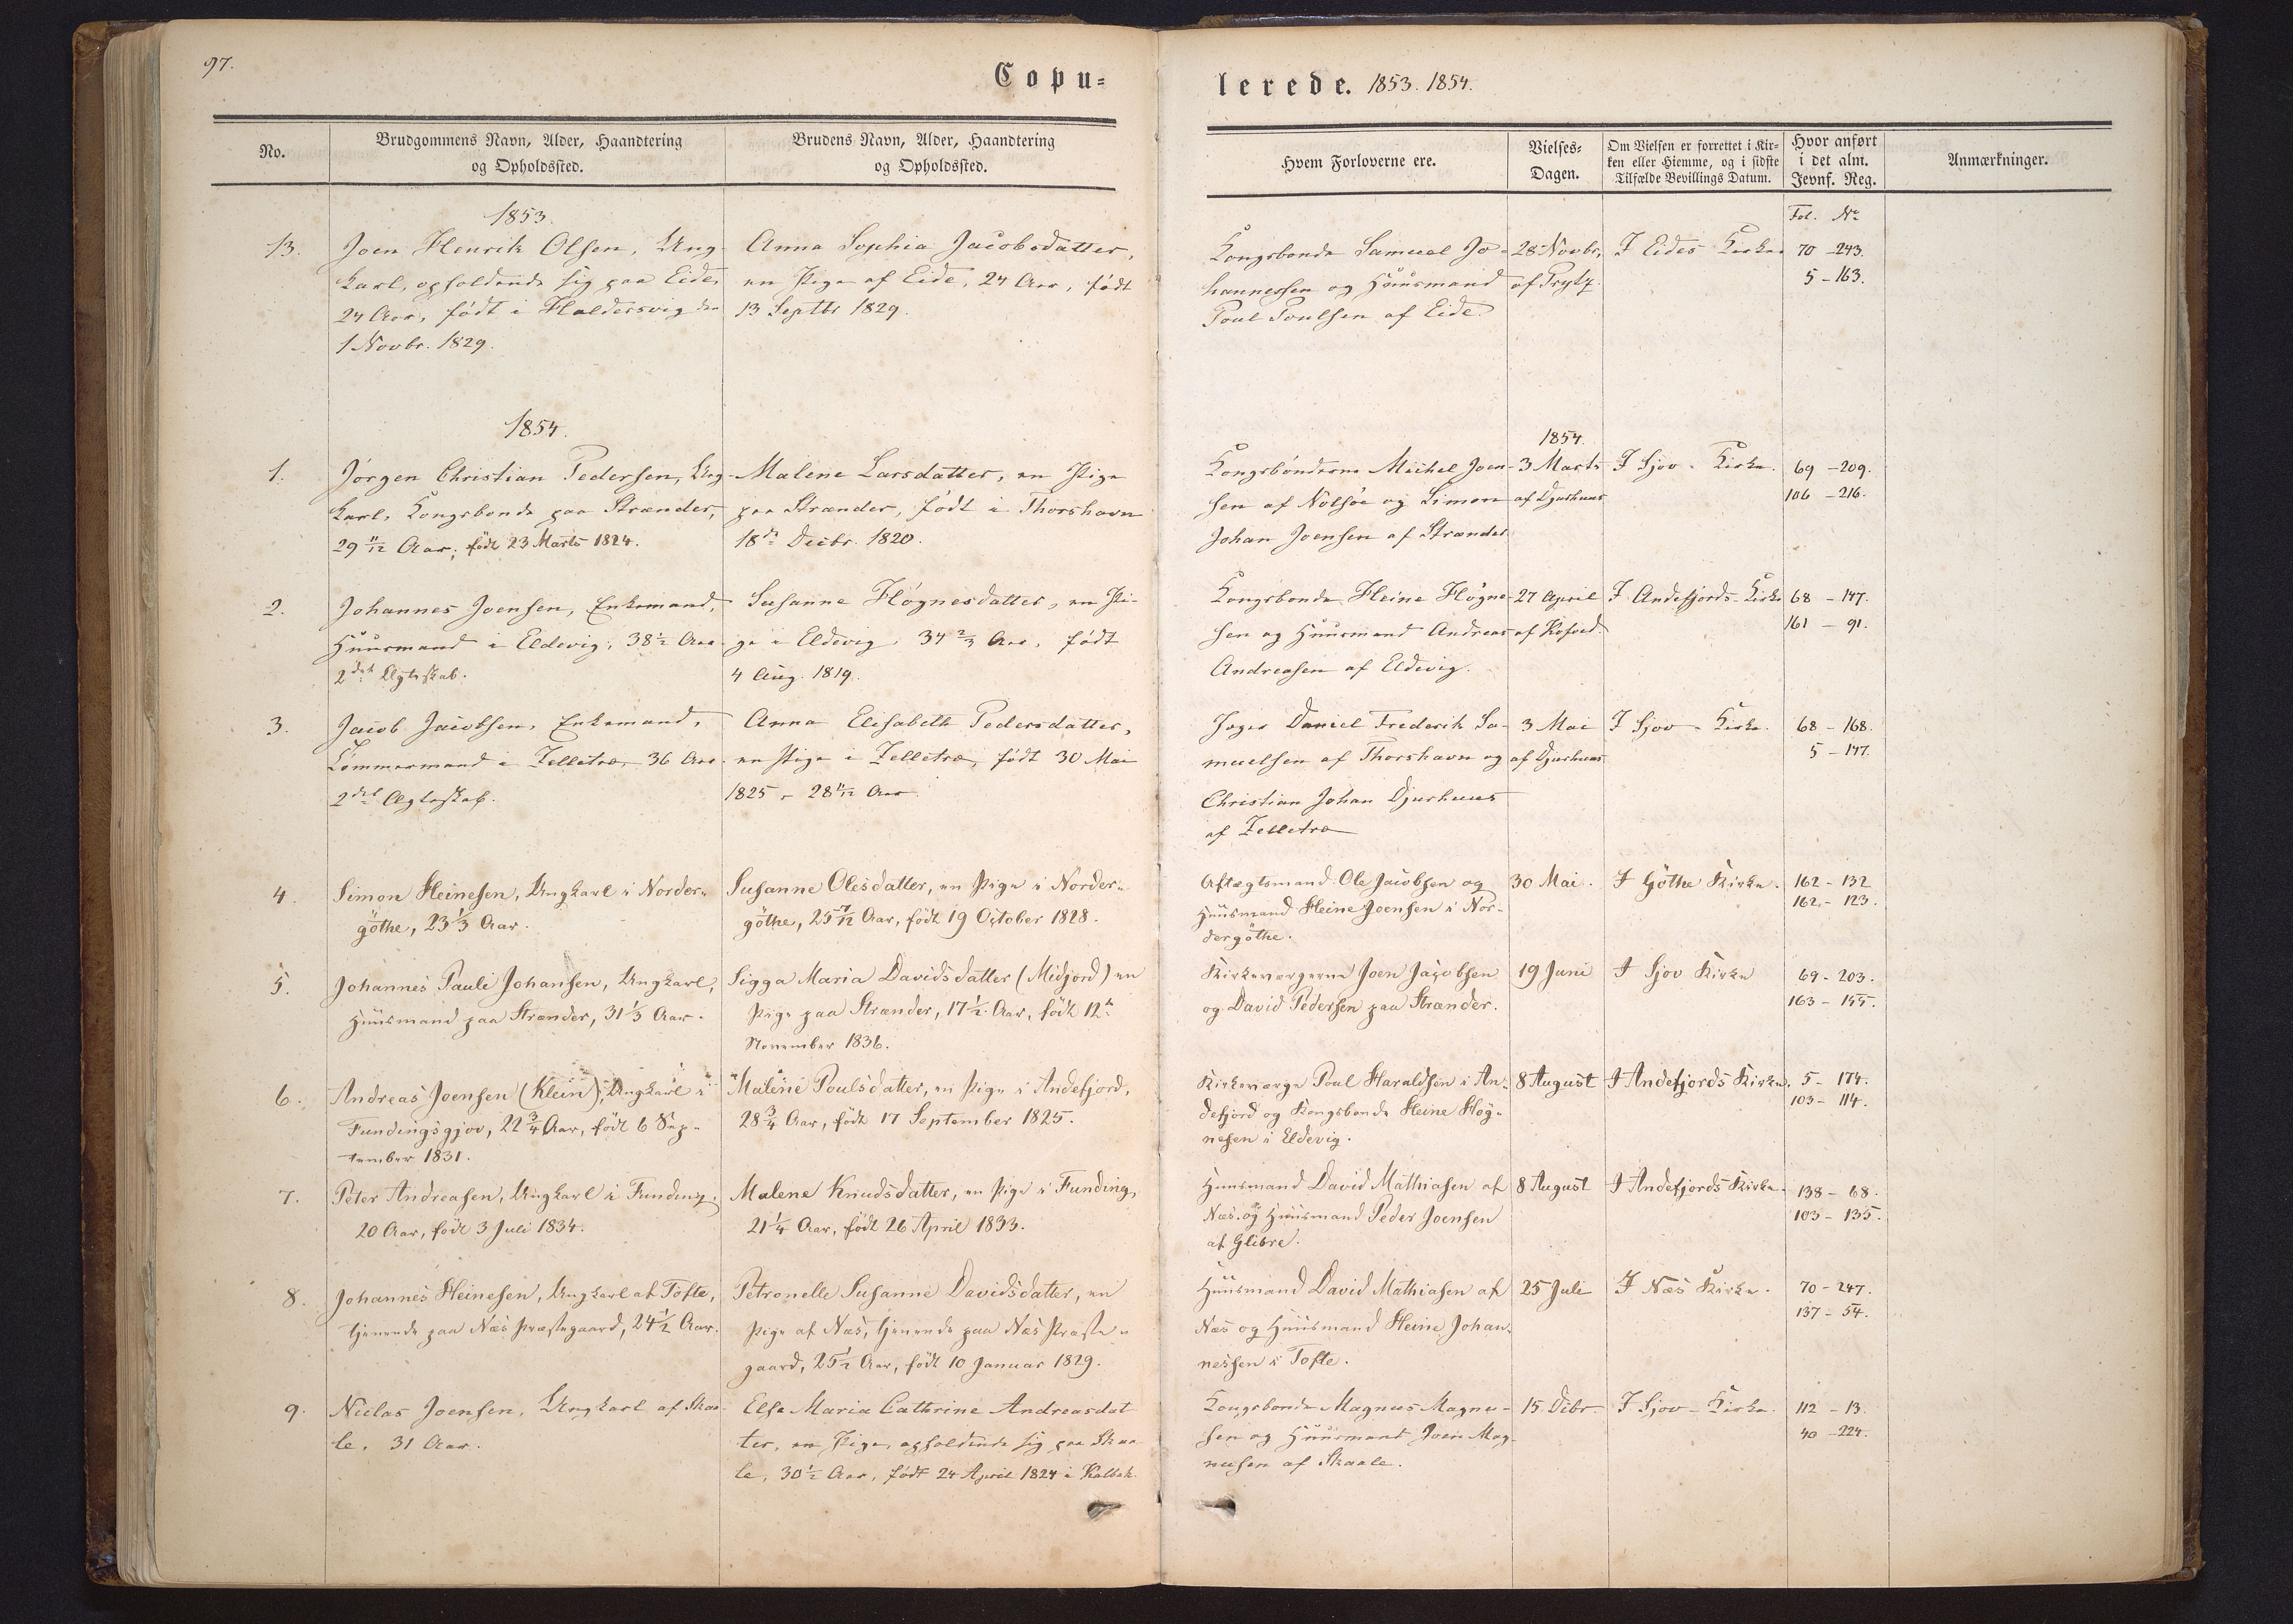 97.
Copu=
lerede. 1853. 1854.
No.
Brudgommens Navn, Alder, Haandtering
og Opholdssted.
Brudens Navn, Alder, Haandtering
og Opholdssted.
Hvem Forloverne ere.
Vielses=
Dagen.
Om Vielsen er forrettet i Kir=
ken eller Hiemme, og i sidste
Tilfælde Bevillings Datum.
Hvor anført
i det alm.
Jevnf. Reg.
Anmærkninger.
1853.
13.
Joen Henrik Olsen, Ung-
karl, opholdende sig paa Eide,
24 Aar, født i Haldersvig den
1 Novbr. 1829.
Anna Sophia Jacobsdatter,
en Pige af Eide, 24 Aar, født
13 Septbr 1829.
Kongsbonde Samuel Jo-
hannessen og Huusmand
Poul Poulsen af Eide.
28 Novbr.
af Prytz.
I Eides Kirke
Fol. No
70 - 243.
5 - 163.
1854.
1.
Jørgen Christian Pedersen, Ung-
karl, Kongsbonde paa Strænder,
29 11/12 Aar; født 23 Marts 1824.
Malene Larsdatter, en Pige
paa Strænder, født i Thorshavn
18de Decbr. 1820.
Kongsbønderne Michel Joen-
sen af Nolsøe og Simon
Johan Joensen af Strænder
1854.
3 Marts
af Djurhuus
I Sjov-Kirke.
69 - 209.
106 - 216.
2.
Johannes Joensen, Enkemand,
Huusmand i Eldevig, 38 1/2 Aar
2det Ægteskab.
Susanne Høgnesdatter, en Pi-
ge i Eldevig, 34 2/3 Aar, født
4 Aug. 1819.
Kongsbonde Heine Høgne-
sen og Huusmand Andreas
Andreasen af Eldevig.
27 April
af Kofoed.
I Andefjords-Kirke
68 - 147.
161 - 91.
3.
Jacob Jacobsen, Enkemand,
Tømmermand i Zelletræ, 36 Aar
2det Ægteskab.
Anna Elisabeth Pedersdatter,
en Pige i Zelletræ, født 30 Mai
1825, 28 11/12 Aar
Daniel Frederik Sa-
muelsen af Thorshavn og
Christian Johan Djurhuus
af Zelletræ
3 Mai
af Djurhuus
I Sjov-Kirke.
68 - 168.
5 - 147.
4.
Simon Heinesen, Ungkarl i Norder-
göthe, 23 1/3 Aar.
Susanne Olesdatter, en Pige i Norder-
göthe, 25 7/12 Aar, født 19 October 1828.
Aftægtsmand Ole Jacobsen og
Huusmand Heine Joensen i Nor-
dergöthe.
30 Mai.
I Göthe Kirke.
162 - 132
162 - 123.
5.
Johannes Pauli Johansen, Ungkarl,
Huusmand paa Strænder, 31 1/3 Aar.
Sigga Maria Davidsdatter (Midjord) en
Pige paa Strænder, 17 1/2 Aar, født 12te
November 1836.
Kirkeværgerne Joen Jacobsen
og David Pedersen paa Strænder.
19 Juni
I Sjov Kirke
69 - 203.
163 - 155.
6.
Andreas Joensen (Klein), Ungkarl i
Fundingsgjov, 22 3/4 Aar, født 6 Sep-
tember 1831.
Malene Poulsdatter, en Pige i Andefjord,
28 3/4 Aar, født 17 September 1825.
Kirkeværge Poul Haraldsen i An-
defjord og Kongsbonde Heine Høg-
nesen i Eldevig.
8 August
I Andefjords Kirke.
5 - 174.
103 - 114.
7.
Peter Andreasen, Ungkarl i Funding,
20 Aar, født 3 Juli 1834.
Malene Knudsdatter, en Pige i Funding,
21 1/4 Aar, født 26 April 1833.
Huusmand David Mathiasen af
Næs og Huusmand Peder Joensen
af Glibre.
8 August
I Andefjords Kirke.
138 - 68.
103 - 135.
8.
Johannes Heinesen, Ungkarl af Tofte,
tjenende paa Næs Præstegaard, 24 1/2 Aar.
Petronelle Susanne Davidsdatter, en
Pige af Næs, tjenende paa Næs Præste-
gaard, 25 1/2 Aar, født 10 Januar 1829.
Huusmand David Mathiasen af
Næs og Huusmand Heine Johan-
nessen i Tofte.
25 Juli
I Næs Kirke.
70 - 247.
137 - 54.
9.
Niclas Joensen, Ungkarl af Skaa-
le, 31 Aar.
Else Maria Cathrine Andreasdat
ter, en Pige, opholdende sig paa Skaa
le, 30 1/2 Aar, født 24 April 1824 i Kalbak.
Kongsbonde Magnus Magnu-
sen og Huusmand Joen Mag-
nusen af Skaale.
15 Decbr
I Sjov-Kirke.
112 - 13.
40 - 224.